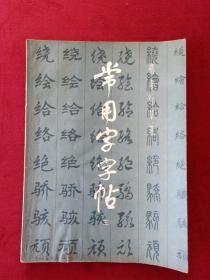 绕绘给络绝骄骇顽
绕绘给络绝骄骇顽
常用字字帖
绕绘给络绝骄骇顽
繞繪給絡絕驕駭頑
绕绘给络绝骄